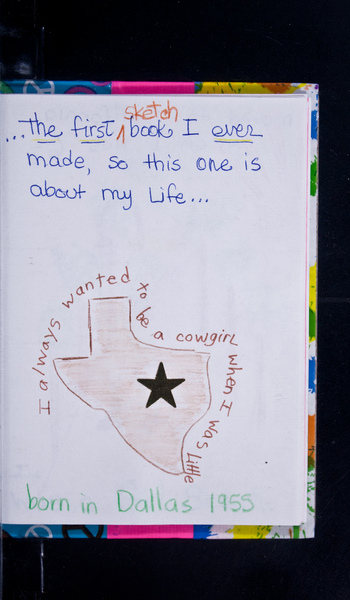 ...the first sketch book I ever
made, so this one is
about my Life...
I always wanted to be a cowgirl when I was Little
born in Dallas 1955